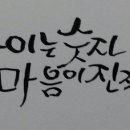 이는 숫자
마음이 진